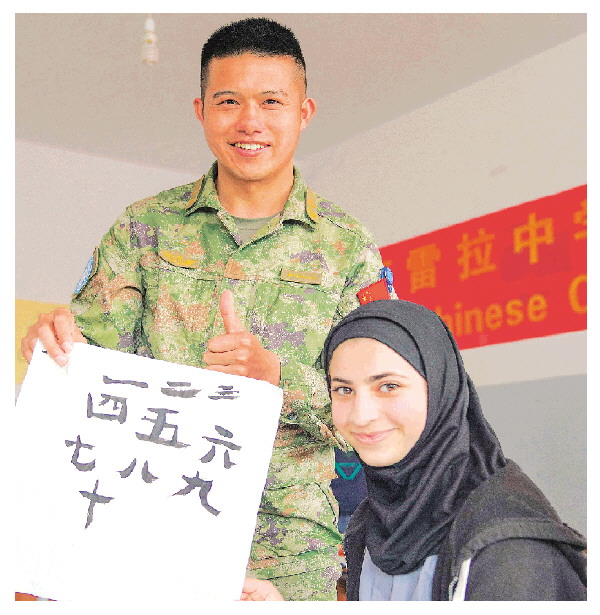 一 二 三
四 五 六
七 八 九
十
雷拉中学
Chinese C